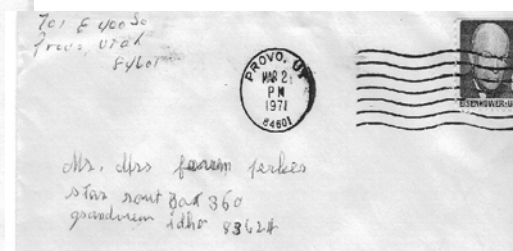 701 E 400 So
Provo, Utah
84601
PROVO, UT
MAR 2
PM
1971
84601
EISENHOWER·U
Mr. Mrs farren jerkes
star rout Box 360
grandview idho 83624